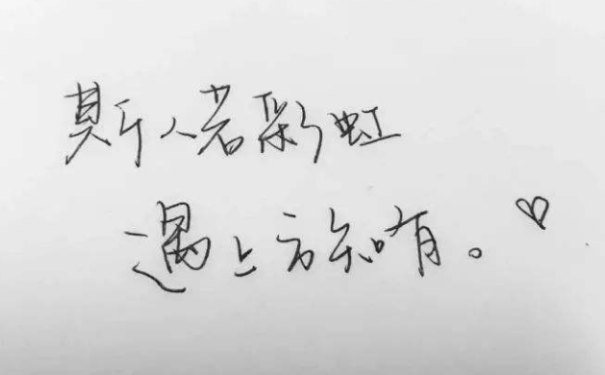 斯人若彩虹
遇上方知有。♡